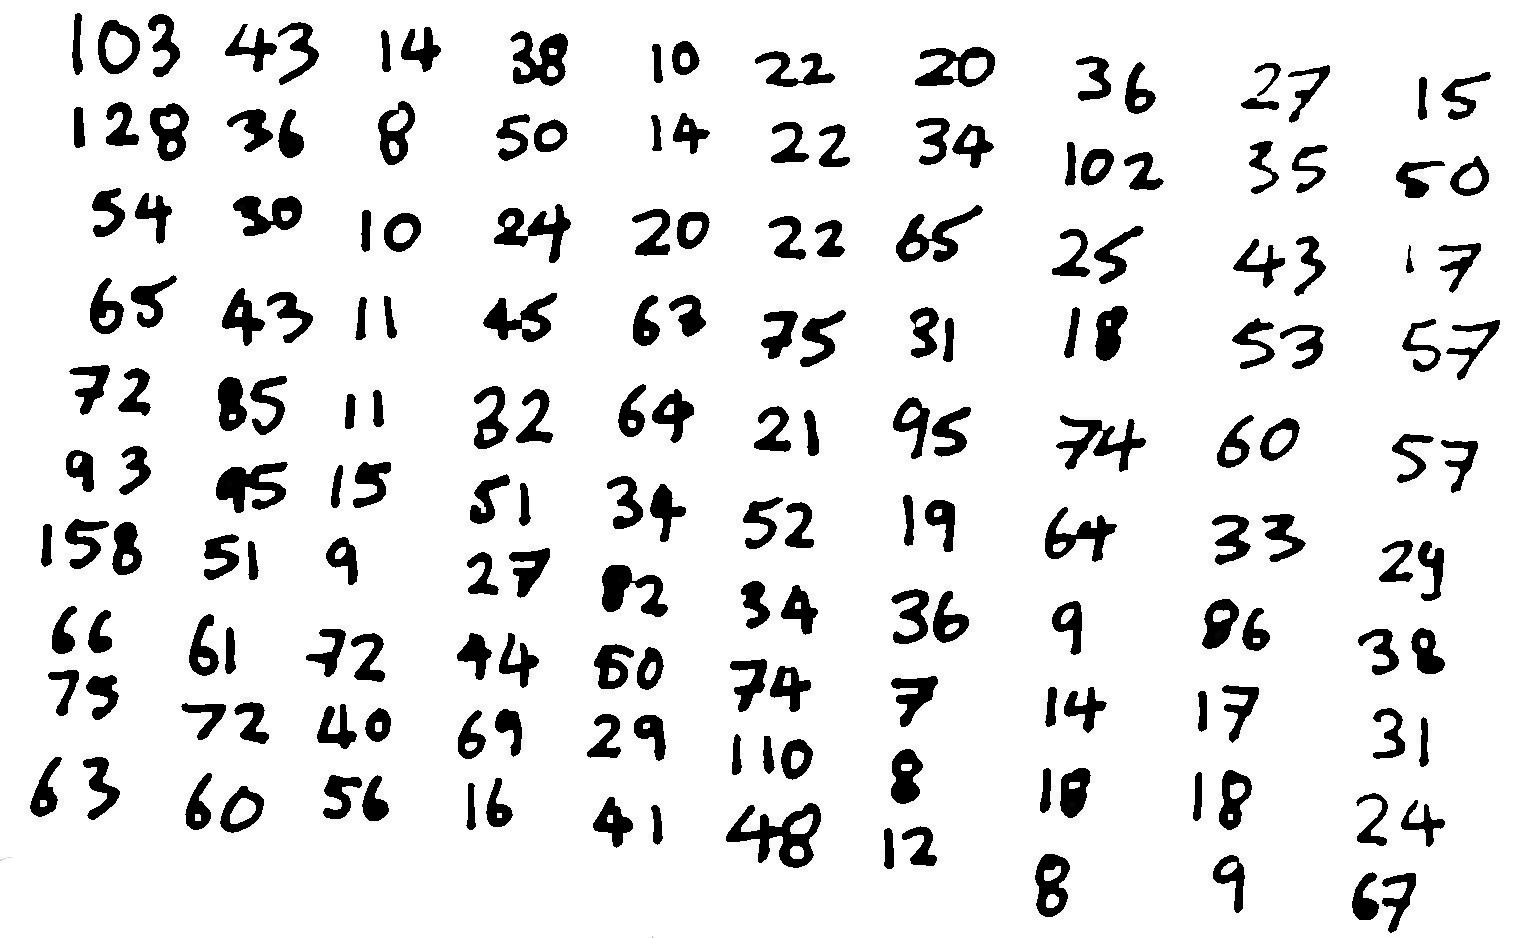 103 43 14 38 10 22 20 36 27 15
128 36 8 50 14 22 34 102 35 50
54 30 10 24 20 22 65 25 43 17
65 43 11 45 63 75 31 18 53 57
72 85 11 32 64 21 95 74 60 57
93 95 15 51 34 52 19 64 33 29
158 51 9 27 82 34 36 9 86 38
66 61 72 44 50 74 7 14 17 31
75 72 40 69 29 110 8 18 18 24
63 60 56 16 41 48 12 8 9 67